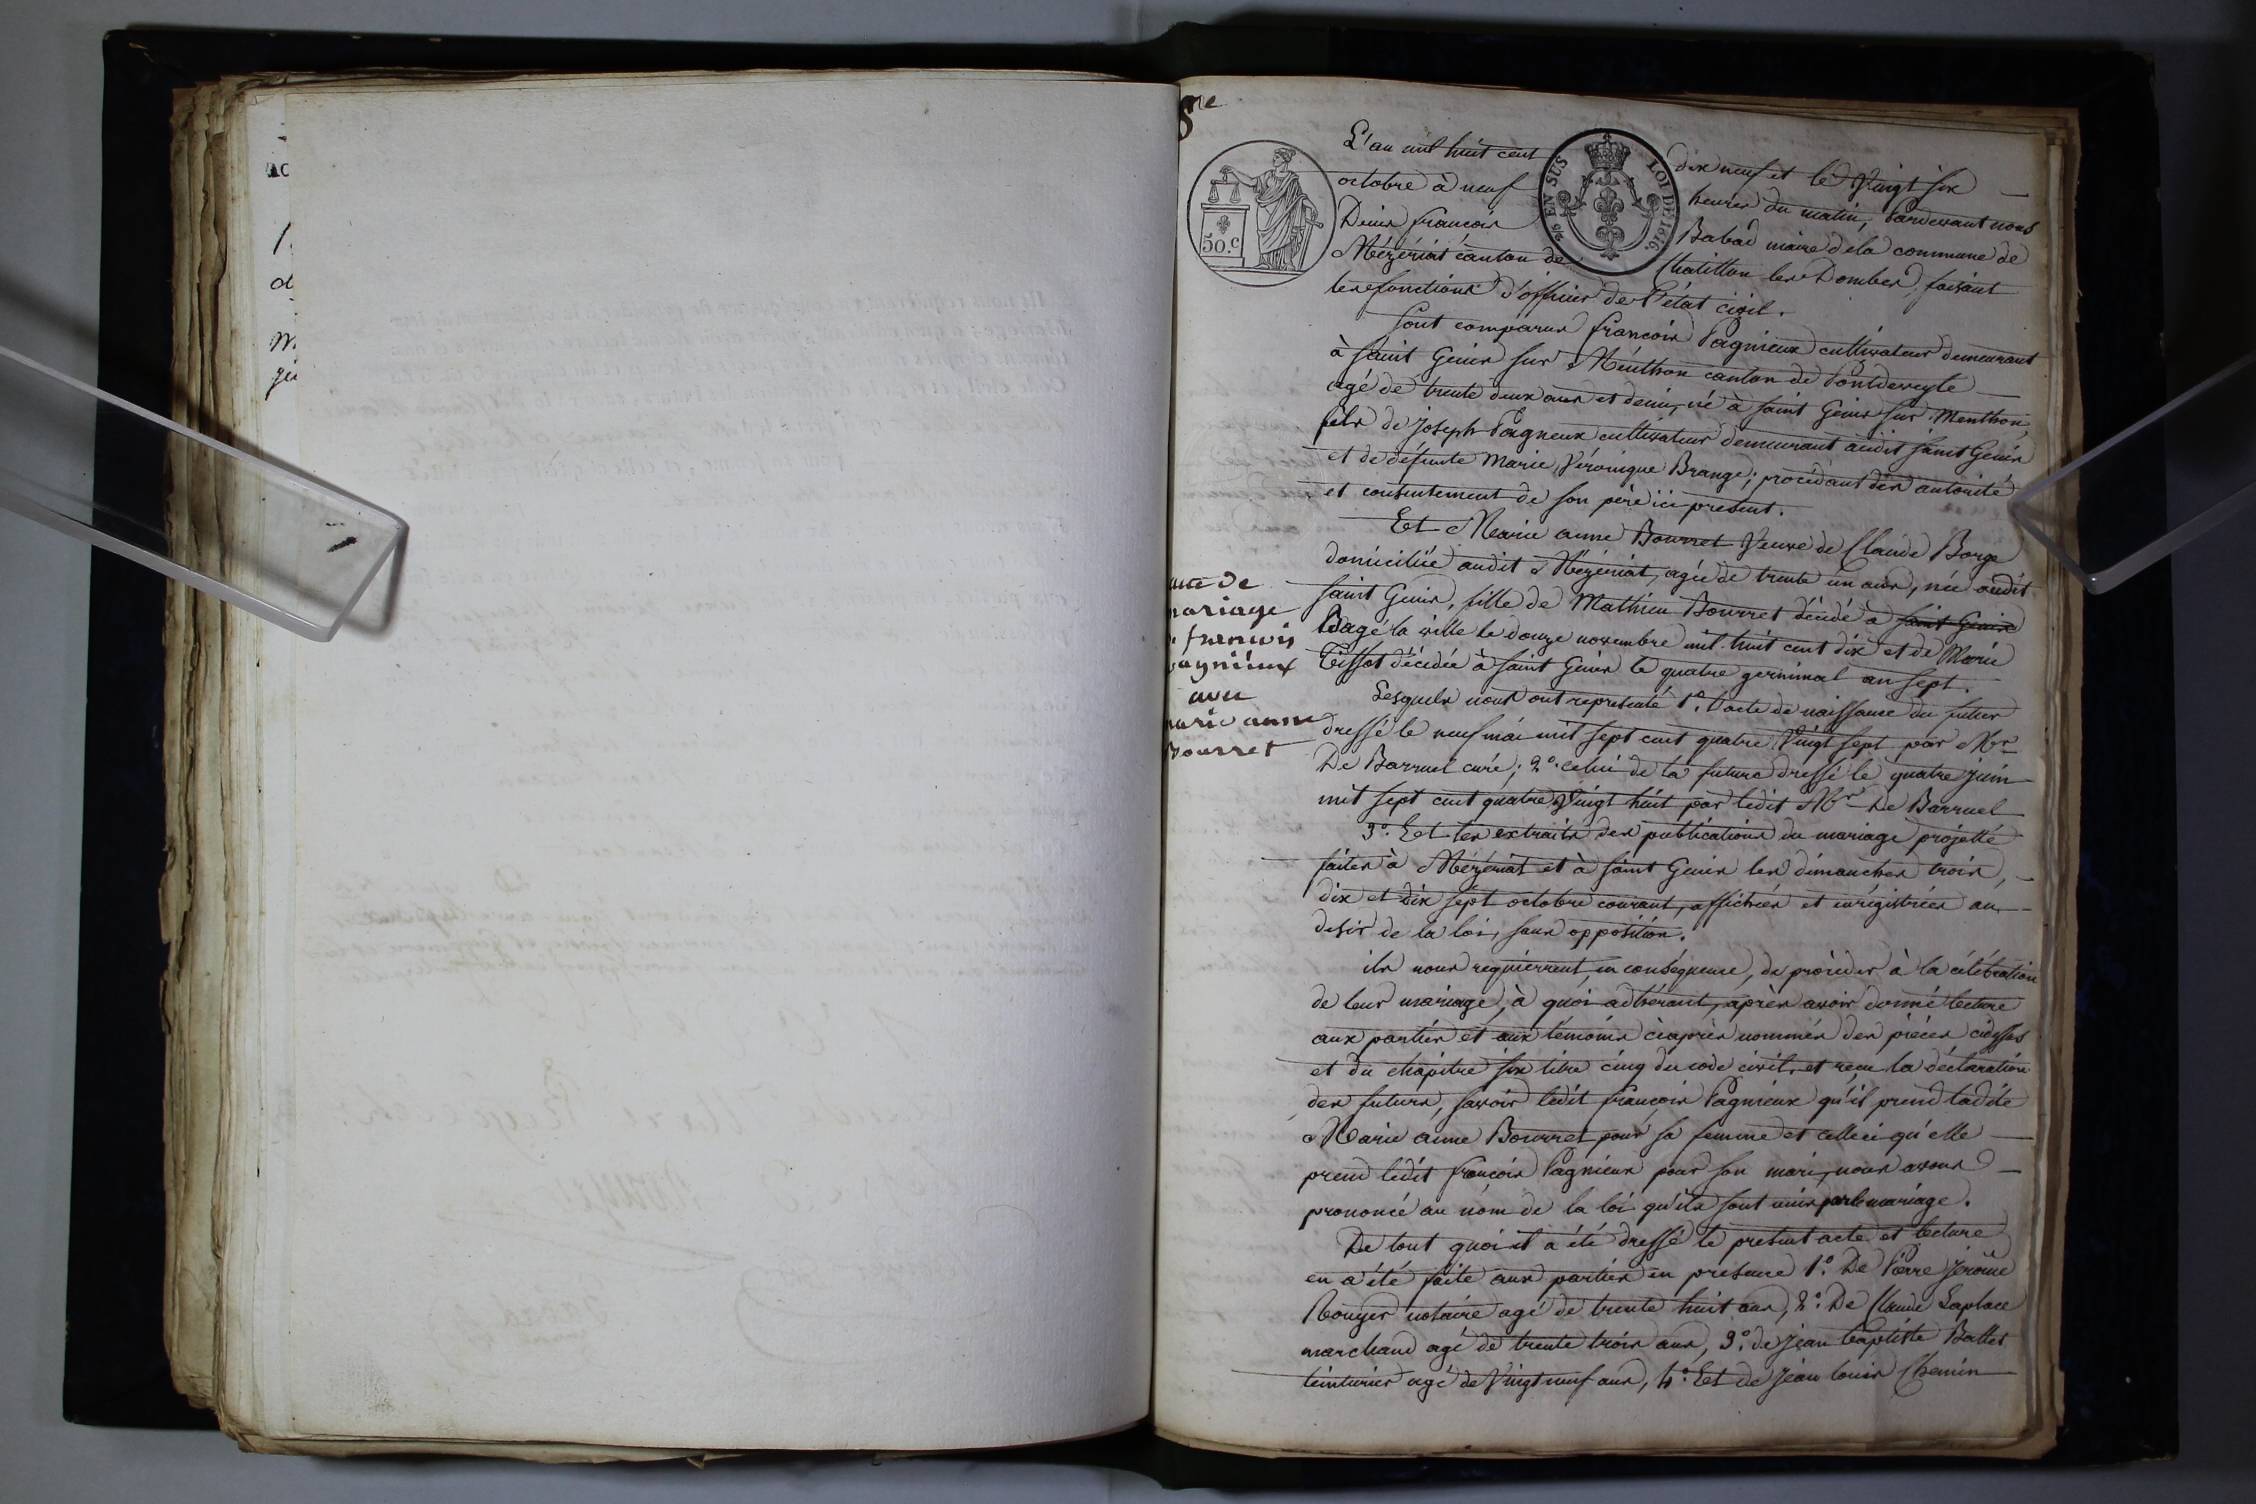 8e
L'an mil huit cent dix neuf et le Vingt six
octobre à neuf heures du matin, Pardevant nous
Denis francois Babad maire de la commune de
Mézériat canton de Chatillon les Dombes, faisant
les fonctions d'officier de l'état civil.
50.c
25 EN SUS
LOI DE 1816.
sont comparus francois Pagnieux cultivateur demeurant
à saint Genis sur Menthon canton de Pontdeveyle
agé de trente deux ans et demi, né à saint Genis sur Menthon,
fils de joseph Pagneux cultivateur demeurant audit saint Genis
et de défunte Marie Véronique Brange; procédant des autorité
et consentement de son père ici present.
Et Marie anne Bourret Veuve de Claude Borge
domiciliée audit Mézériat, agée de trente un ans, née audit
saint Genis, fille de Mathieu Bourret décédé à saint Genis
Bagé la ville le douze novembre mil huit cent dix et de Marie
Tissot décédée à saint Genis le quatre germinal an sept.
acte de
mariage
francois
pagnieux
avec
marie anne
Bourret
Lesquels nous ont representé 1°. l'acte de naissance du futur
dressé le neuf mai mil sept cent quatre Vingt sept par Mr
De Barruel curé; 2°. celui de la future dressé le quatre juin
mil sept cent quatre Vingt huit par ledit Mr De Barruel
3°. Et les extraits des publications du mariage projetté
faites à Mézériat et à saint Genis les dimanches trois,
dix et dix sept octobre courant, affichées et enrégistrées au
desir de la loi, sans opposition.
ils nous requierrent, en conséquence, de procéder à la célébration
de leur mariage, à quoi adhérant, après avoir donné lecture
aux parties et aux témoins ciaprès nommés des pièces cidessus
et du chapitre six titre cinq du code civil, et reçu la déclaration
des futurs, savoir ledit francois Pagnieux qu'il prend ladite
Marie anne Bourret pour sa femme et celleci qu'elle
prend ledit francois Pagnieux pour son mari, nous avons
prononcé au nom de la loi qu'ils sont unis par le mariage.
De tout quoi il a été dressé le present acte et lecture
en a été faite aux parties en présence 1°. De Pierre jérome
Rouyer notaire agé de trente huit ans, 2°. De Claude Laplace
marchand agé de trente trois ans, 3°. de jean baptiste Ballet
teinturier agé de Vingt neuf ans, 4°. Et de jean louis Chemin